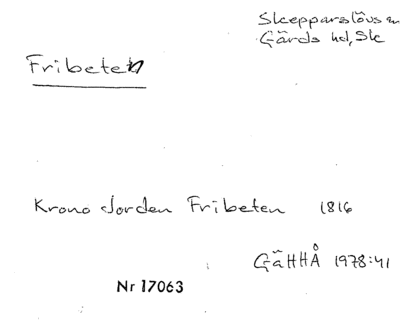 Skepparslövs sn
Gärds hd, Sk
Fribeten
Krono Jorden Fribeten 1816
GäHHÅ 1978:41
Nr 17063